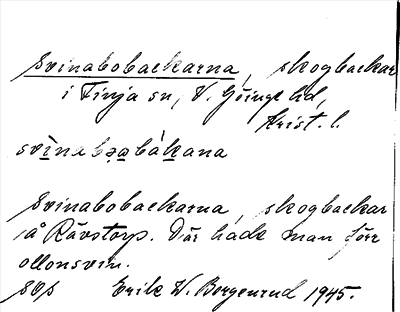 Svinabobackarna, skogbackar
i Finja sn, V. Göinge hd,
Krist. l.
svìnabǝabákana
Svinabobackarna, skogbackar
å Rävstorp. Där hade man förr
ollonsvin.
Erik W. Borgenrud 1945.